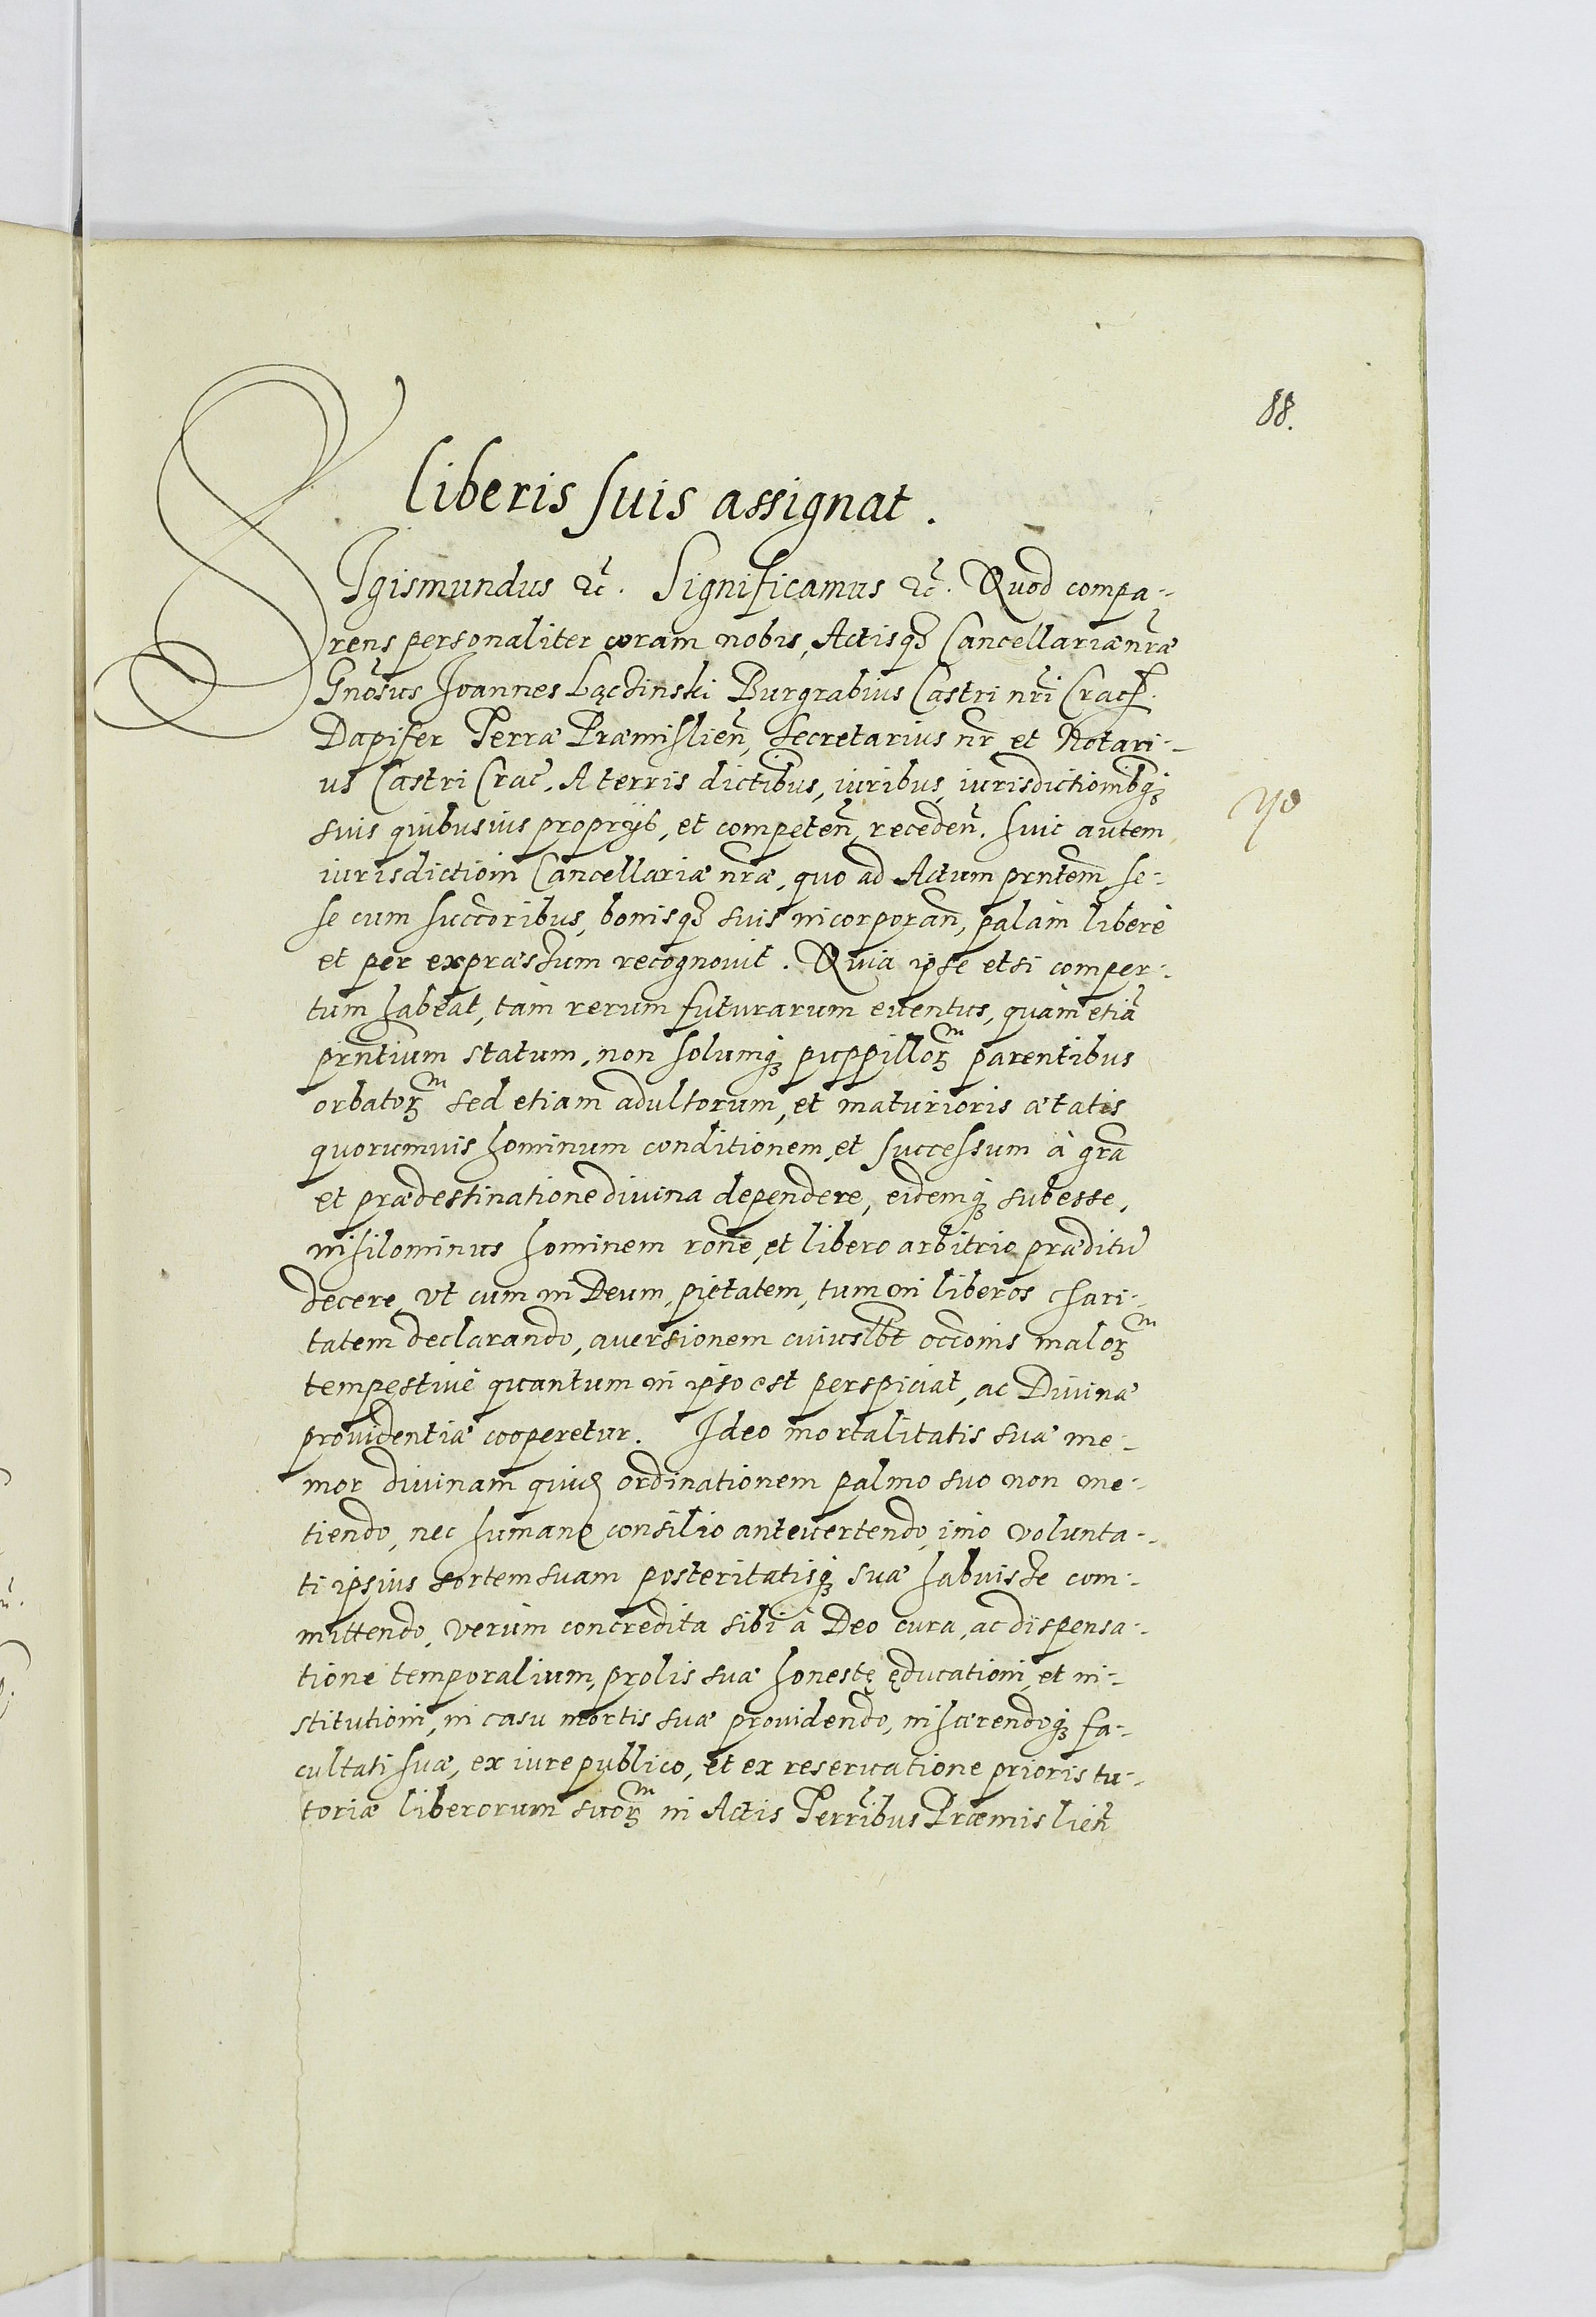 88.
liberis suis assignat.
SIgismundus &c̃. Significamus &c̃. Quod compa-
rens personaliter coram nobis, Actisq₃ Cancellariæ nr̃æ
Gnõsus Joannes Łącżinski Burgrabius Castri nr̃i Crac̃.
Dapifer Terræ Præmislien̄, Secretarius nr̃ et Notari-
us Castri Crac̃. A terris dictibus, iuribus, iurisdictionib̃q₃
suis quibusuis proprijs, et competen̄, receden̄. huic autem
iurisdictioni Cancellariæ nr̃æ, quo ad Actum prñtem se-
se cum succ̃oribus, bonisq₃ suis incorporan̄, palàm liberè
et per expræssum recognouit. Quia ipse etsi comper-
tum habeat, tàm rerum futurarum euentus, quàm etiã
prñtium statum, non solumq₃ puppilloꝝᵐ parentibus
orbatoꝝᵐ sed etiam adultorum, et maturioris ætatis
quorumuis hominum conditionem, et successum à gr̃a
et prædestinatione diuina dependere, eidemq₃ subesse,
nihilominus hominem ronẽ, et libero arbitrio præditũ
decere, vt cum in Deum, pietatem, tum in liberos chari-
tatem declarando, auersionem cuiusłbt occõnis maloꝝᵐ
tempestiuè quantum in ipso est perspiciat, ac Diuinæ
prouidentiæ cooperetur. Ideo mortalitatis suæ me-
mor diuinam quidẽ ordinationem palmo suo non me-
tiendo, nec humano consilio anteuertendo, imò volunta-
ti ipsius sortem suam posteritatisq₃ suæ habuisse com-
mittendo, verùm concredita sibi à Deo cura, ac dispensa-
tione temporalium, prolis suæ honestę ęducationi, et in-
stitutioni, in casu mortis suæ prouidendo, inhærendoq₃ fa-
cultati suæ, ex iure publico, et ex reseruatione prioris tu-
toriæ liberorum suoꝝᵐ in Actis Terr̃ibus Præmislien̄